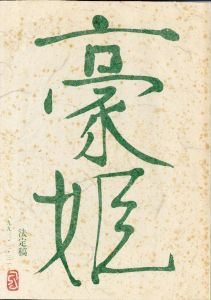 豪姫
法定稿